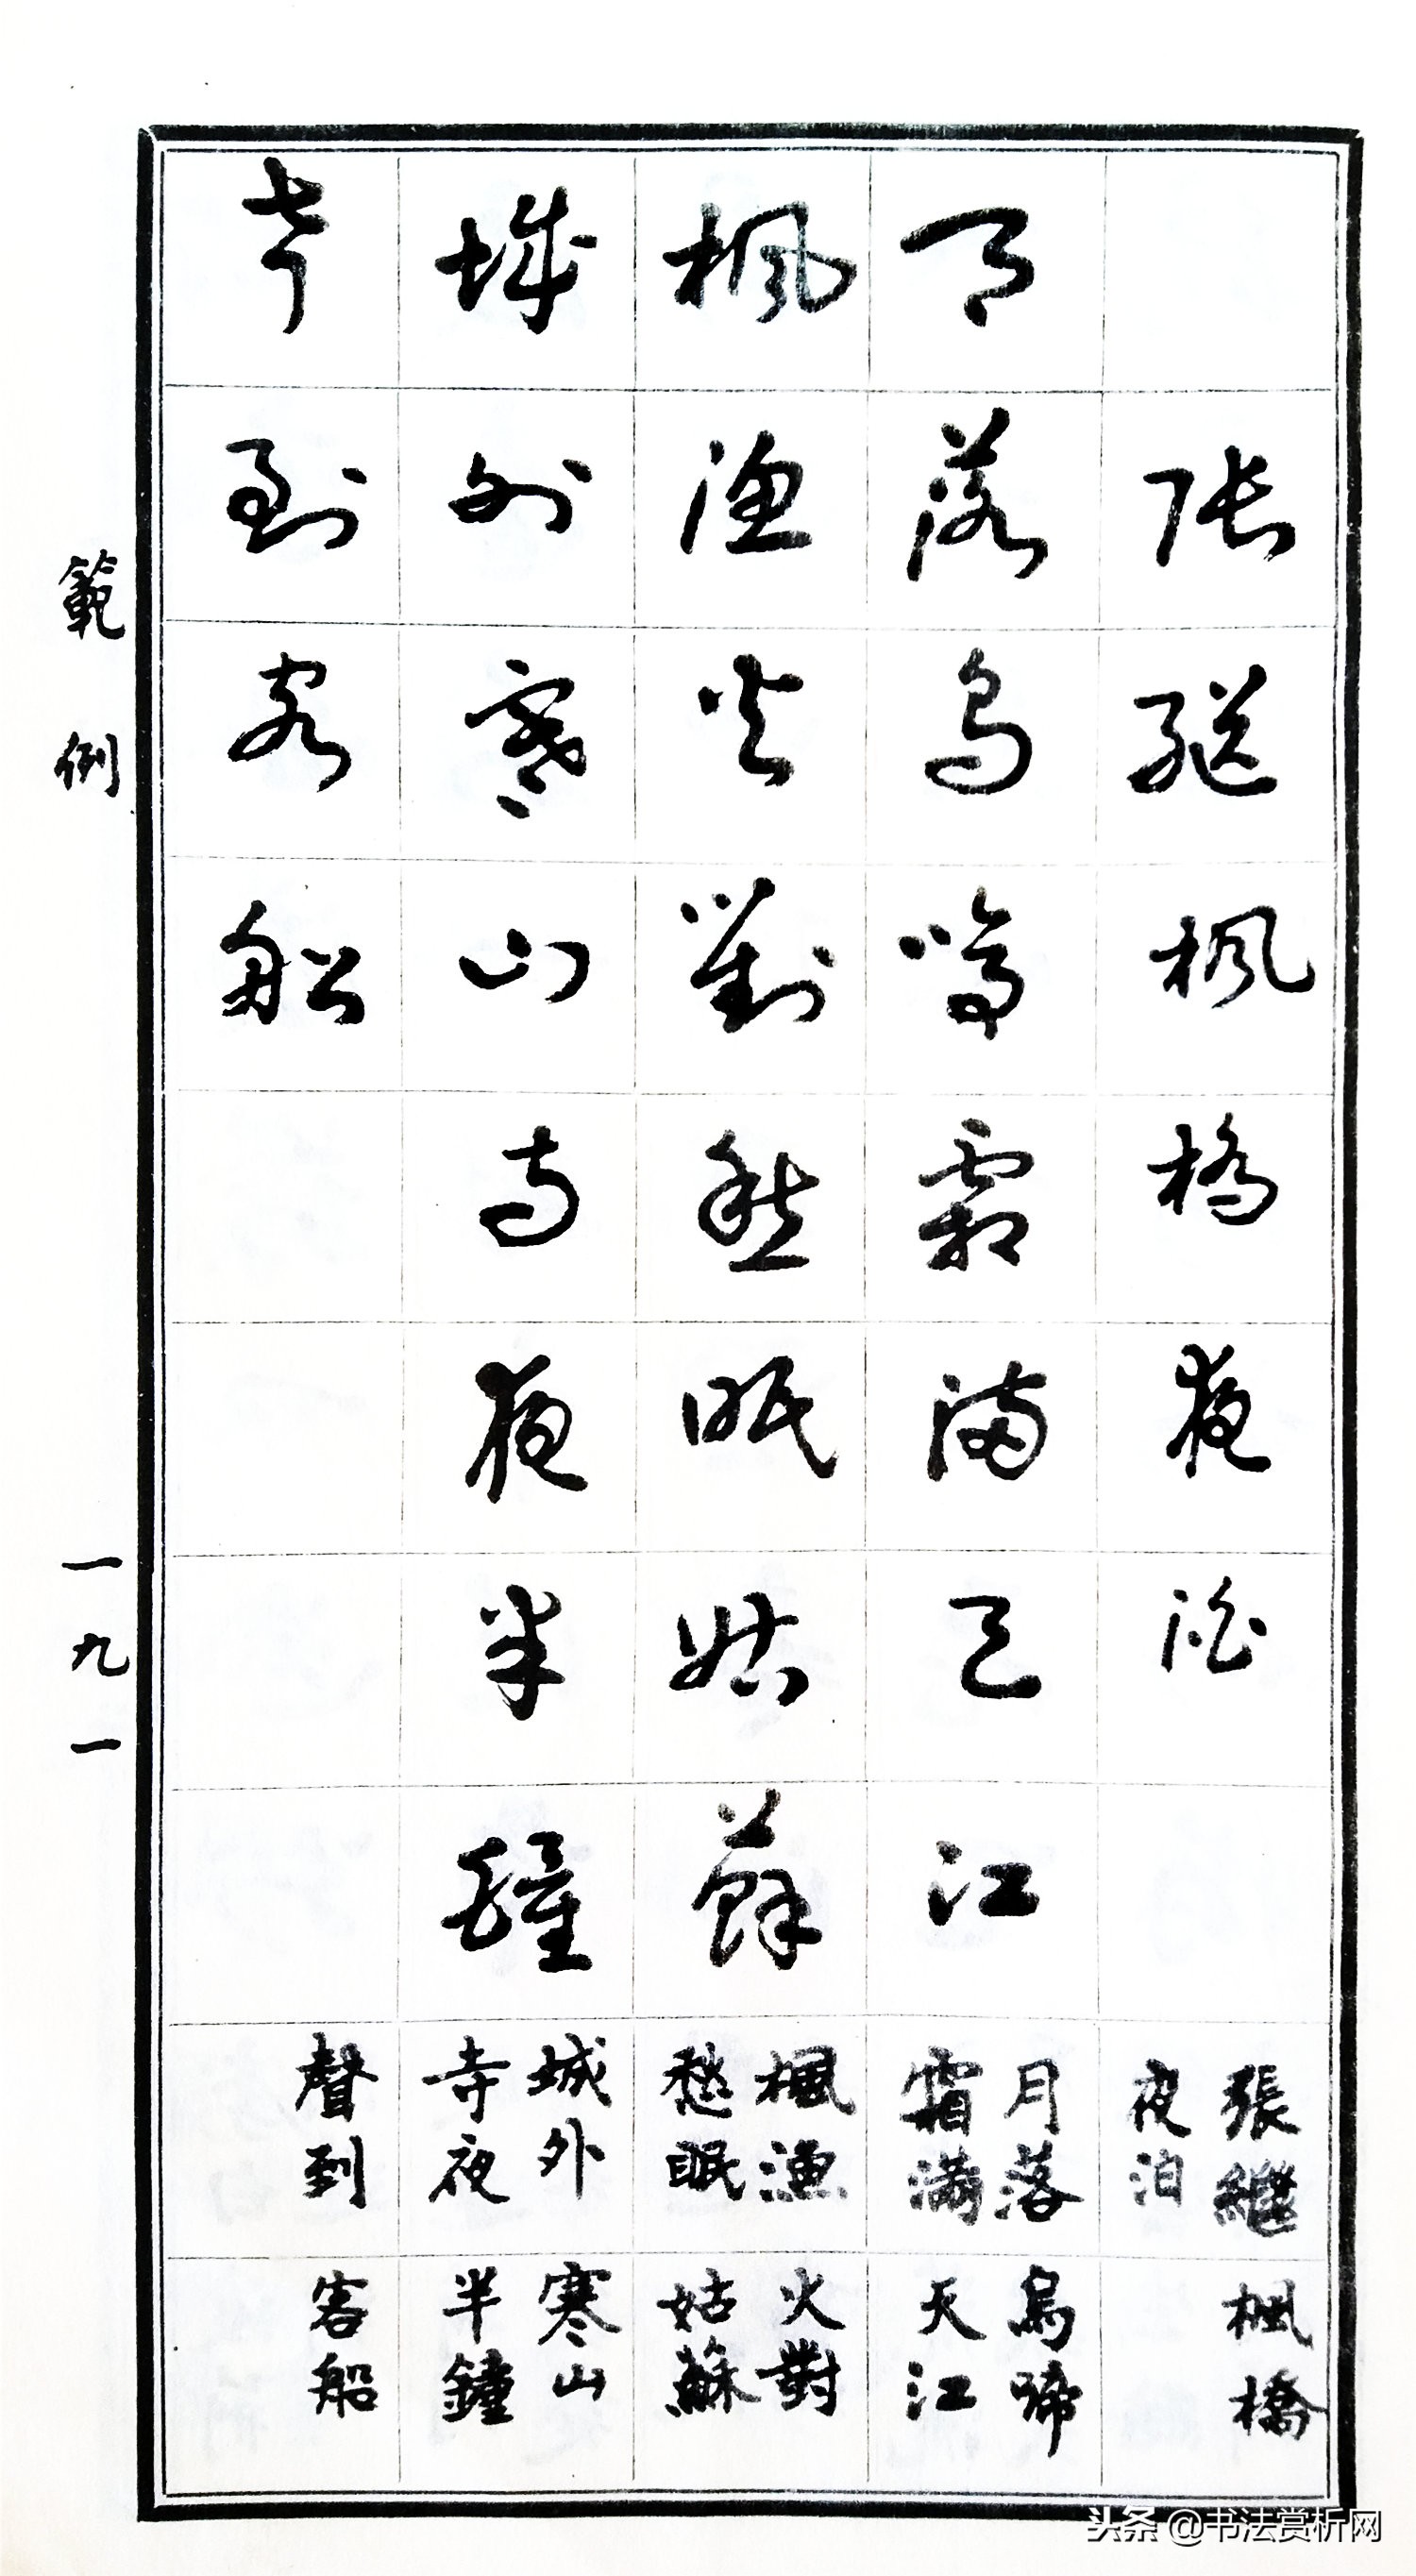 張繼楓橋夜泊
月落烏啼霜滿天江
楓漁火對愁眠姑蘇
城外寒山寺夜半鐘
聲到客船
張繼楓橋
夜泊
月落烏啼
霜滿天江
楓漁火對
愁眠姑蘇
城外寒山
寺夜半鐘
聲到客船
範例
一九一
头条 @书法赏析网